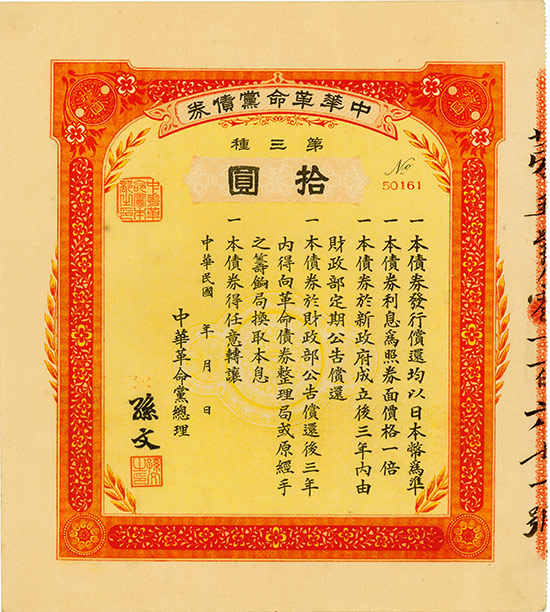 中華革命黨債券
第三種
拾圓
No
50161
一本債券發行償還均以日本幣爲準
一本債券利息爲照券面價格一倍
一本債券於新政府成立後三年內由
財政部定期公告償還
一本債券於財政部公告償還後三年
內得向革命債券整理局或原經手
之籌餉局換取本息
一本債券得任意轉讓
中華民國　年　月　日
中華革命黨總理
孫文
孫文之印
五萬零一百六十一號